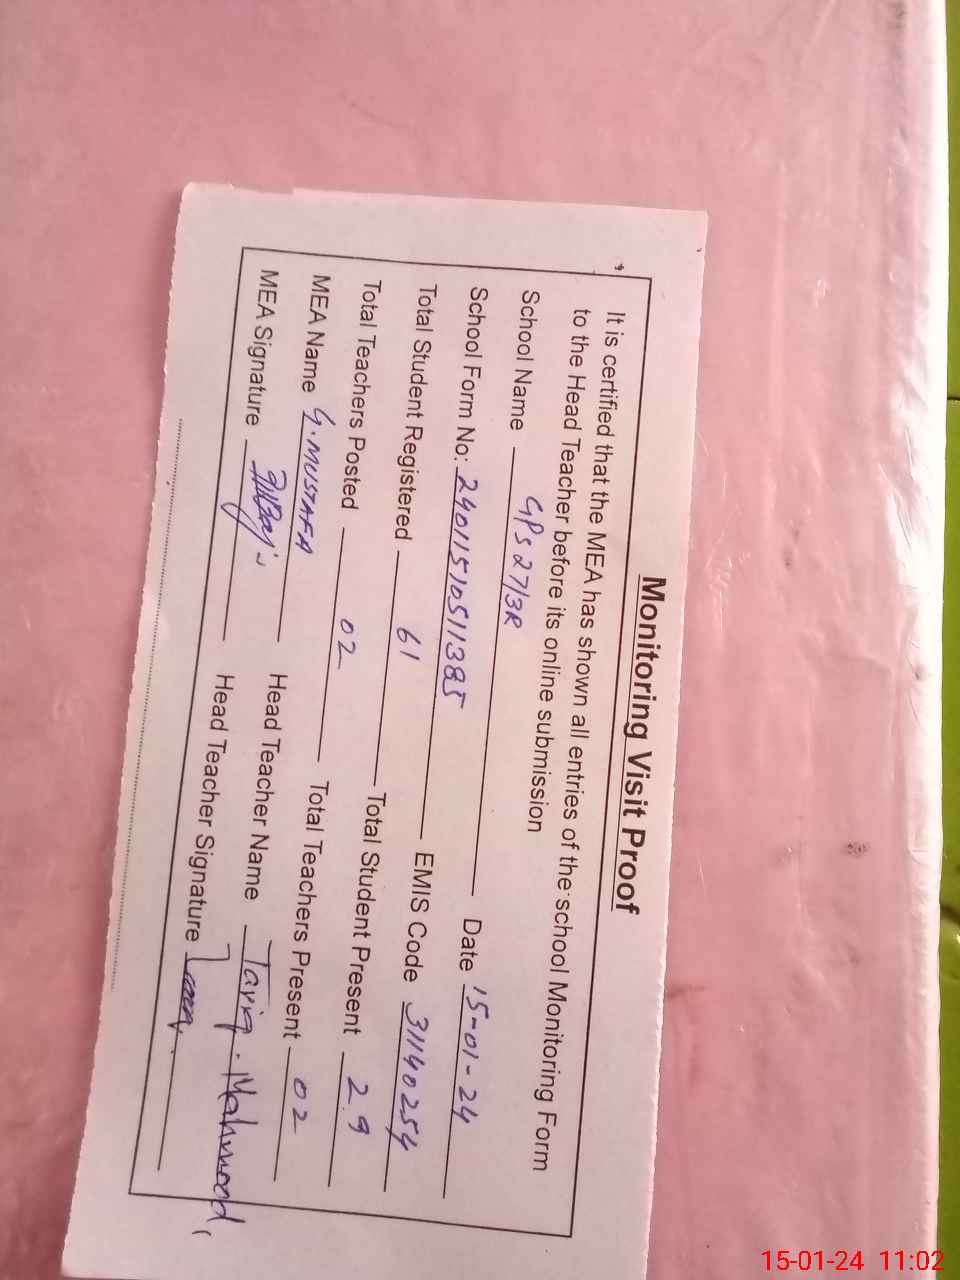 Monitoring Visit Proof
It is certified that the MEA has shown all entries of the school Monitoring Form
to the Head Teacher before its online submission
School Name GPS 27/3R Date 15-01-24
School Form No: 24011510511385 EMIS Code 31140254
Total Student Registered 61 Total Student Present 29
Total Teachers Posted 02 Total Teachers Present 02
MEA Name G. MUSTAFA Head Teacher Name Tariq Mahmood
MEA Signature Head Teacher Signature
15-01-24 11:02